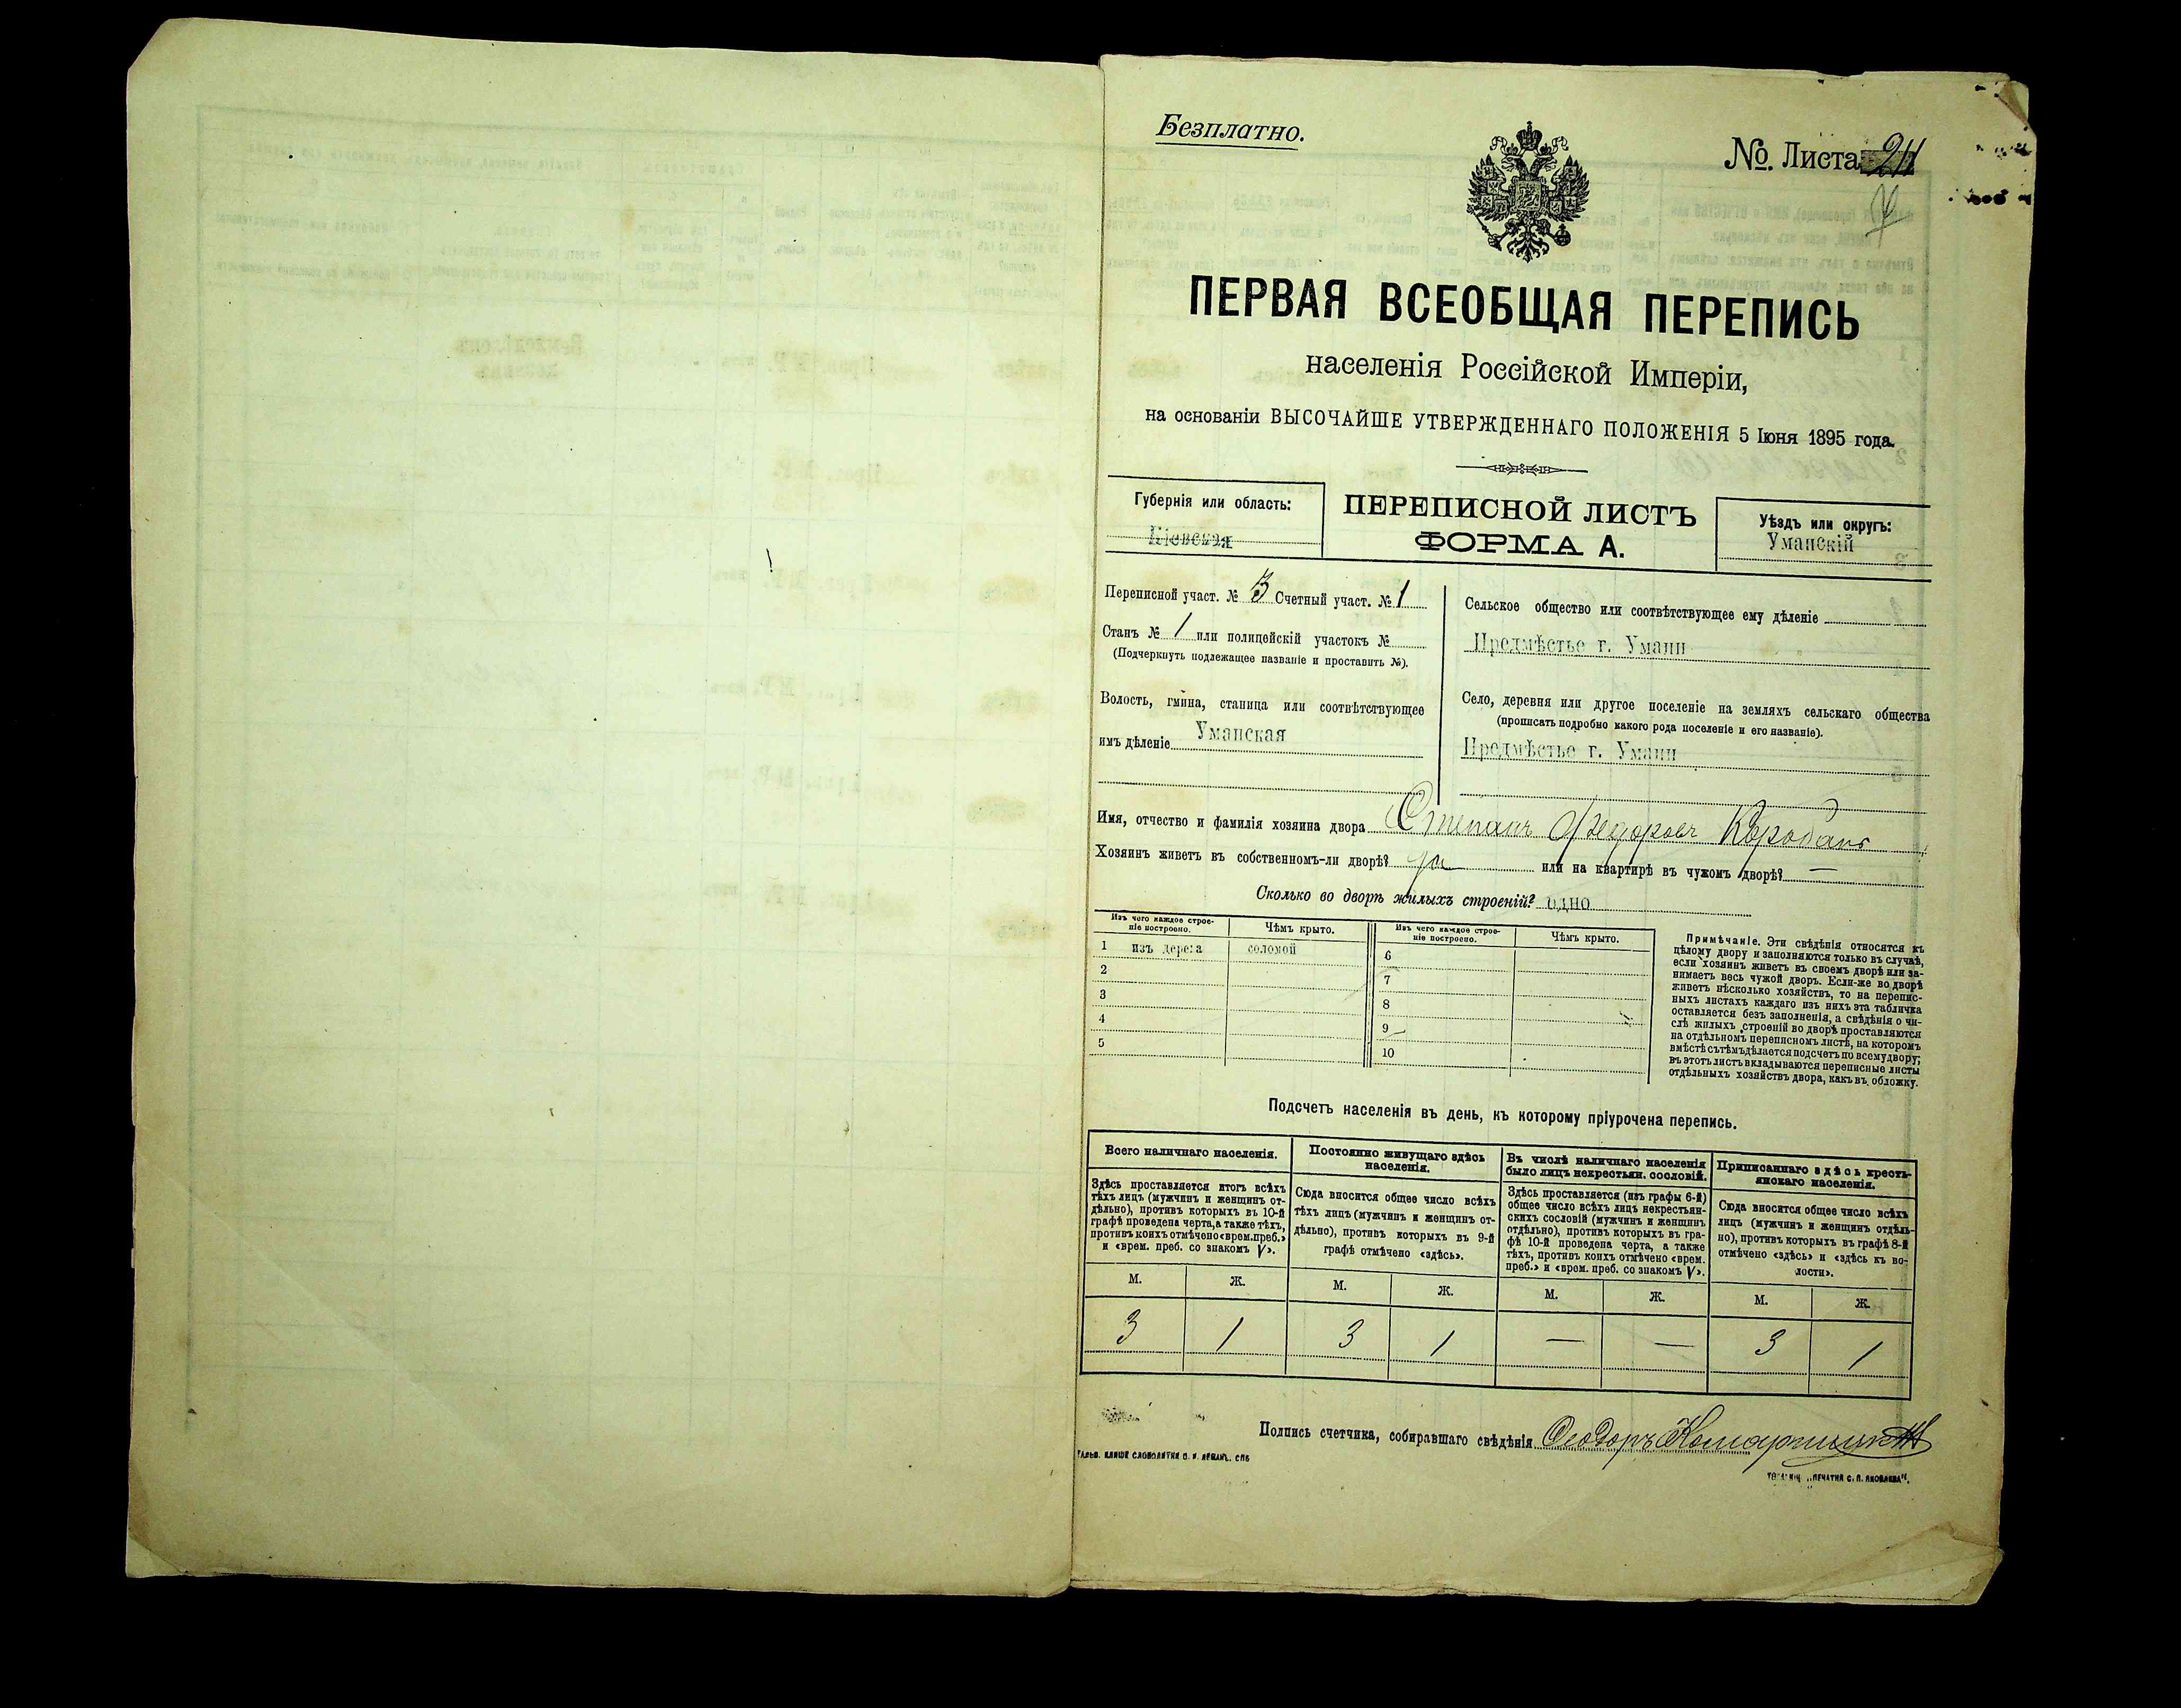 Безплатно.
№. Листа 211
ПЕРВАЯ ВСЕОБЩАЯ ПЕРЕПИСЬ
населенія Россійской Имперіи,
на основаніи ВЫСОЧАЙШЕ УТВЕРЖДЕННАГО ПОЛОЖЕНІЯ 5 Іюня 1895 года.
Губернія или область:
Кіевская
ПЕРЕПИСНОЙ ЛИСТЪ
ФОРМА А.
Уѣздъ или округъ:
Уманскій
Переписной участ. № 3 Счетный участ. № 1
Станъ № 1 или полицейскій участокъ №
(Подчеркнуть подлежащее названіе и проставить №).
Волость, гмина, станица или соотвѣтствующее
имъ дѣленіе Уманская
Сельское общество или соотвѣтствующее ему дѣленіе
Предмѣстье г. Умани
Село, деревня или другое поселеніе на земляхъ сельскаго общества
(прописать подробно какого рода поселеніе и его названіе).
Предмѣстье г. Умани
Имя, отчество и фамилія хозяина двора Степанъ Федоровъ Коробанъ
Хозяинъ живетъ въ собственномъ-ли дворѣ? да или на квартирѣ въ чужомъ дворѣ? —
Сколько во дворѣ жилыхъ строеній? одно
Изъ чего каждое строе-
ніе построено.
Чѣмъ крыто.
Изъ чего каждое строе-
ніе построено.
Чѣмъ крыто.
1 изъ дерева соломой
2
3
4
5
6
7
8
9
10
Примѣчаніе. Эти свѣдѣнія относятся къ
цѣлому двору и заполняются только въ случаѣ,
если хозяинъ живетъ въ своемъ дворѣ или за-
нимаетъ весь чужой дворъ. Если-же во дворѣ
живетъ нѣсколько хозяйствъ, то на перепис-
ныхъ листахъ каждаго изъ нихъ эта табличка
оставляется безъ заполненія, а свѣдѣнія о чи-
слѣ жилыхъ строеній во дворѣ проставляются
на отдѣльномъ переписномъ листѣ, на которомъ
вмѣстѣ съ тѣмъ дѣлается подсчетъ по всему двору;
въ этотъ листъ вкладываются переписные листы
отдѣльныхъ хозяйствъ двора, какъ въ обложку.
Подсчетъ населенія въ день, къ которому пріурочена перепись.
Всего наличнаго населенія.
Здѣсь проставляется итогъ всѣхъ
тѣхъ лицъ (мужчинъ и женщинъ от-
дѣльно), противъ которыхъ въ 10-й
графѣ проведена черта, а также тѣхъ,
противъ коихъ отмѣчено «врем. преб.»
и «врем. преб. со знакомъ V».
Постоянно живущаго здѣсь
населенія.
Сюда вносится общее число всѣхъ
тѣхъ лицъ (мужчинъ и женщинъ от-
дѣльно), противъ которыхъ въ 9-й
графѣ отмѣчено «здѣсь».
Въ числѣ наличнаго населенія
было лицъ некрестьян. сословій.
Здѣсь проставляется (изъ графы 6-й)
общее число всѣхъ лицъ некрестьян-
скихъ сословій (мужчинъ и женщинъ
отдѣльно), противъ которыхъ въ гра-
фѣ 10-й проведена черта, а также
тѣхъ, противъ коихъ отмѣчено «врем.
преб.» и «врем. преб. со знакомъ V».
Приписаннаго здѣсь кресть-
янскаго населенія.
Сюда вносится общее число всѣхъ
лицъ (мужчинъ и женщинъ отдѣль-
но), противъ которыхъ въ графѣ 8-й
отмѣчено «здѣсь» и «здѣсь къ во-
лости».
М. Ж. М. Ж. М. Ж. М. Ж.
3 1 3 1 — — 3 1
Подпись счетчика, собиравшаго свѣдѣнія Феодоръ